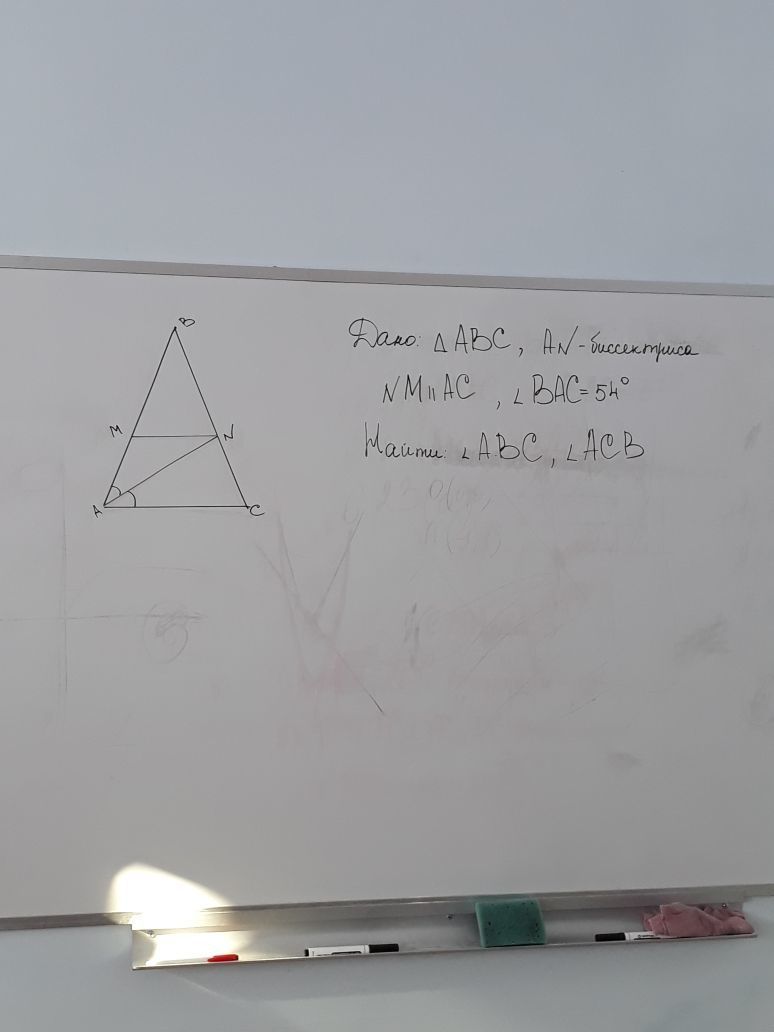 B
M
N
A
C
Дано: △ABC, AN - биссектриса
NM || AC, ∠BAC = 54°
Найти: ∠ABC, ∠ACB